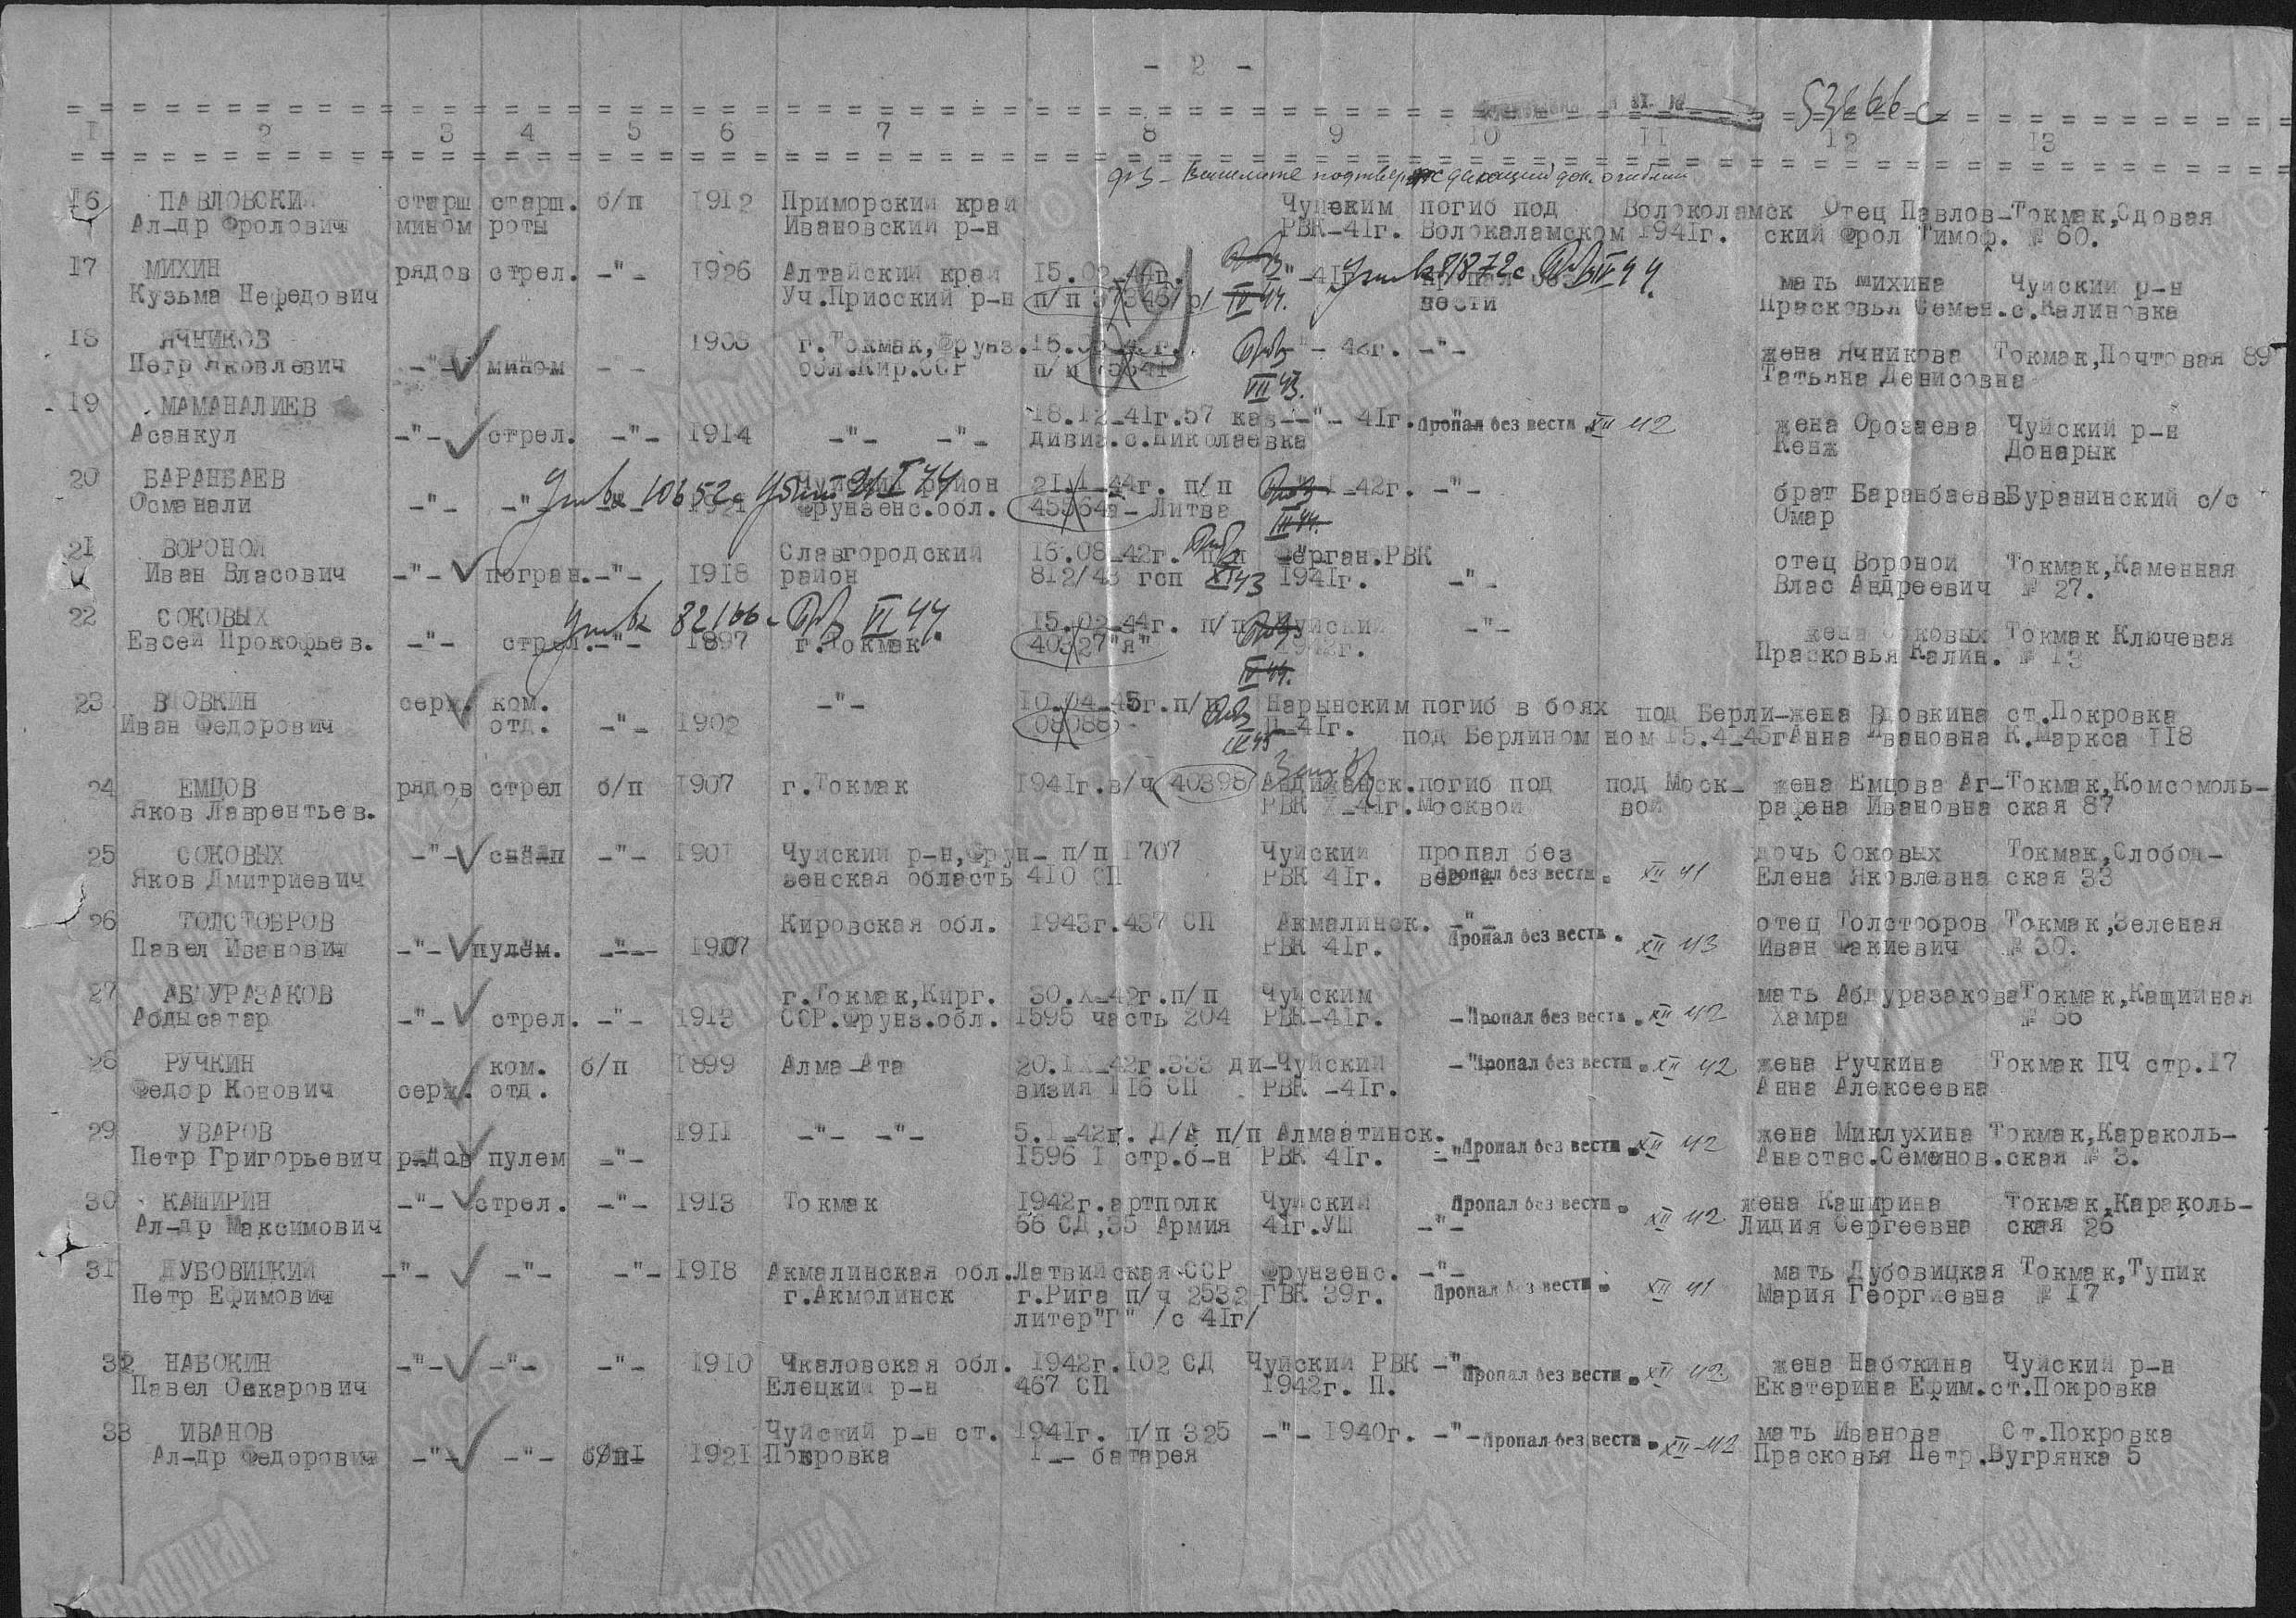 - 2 -
53666с
1 2 3 4 5 6 7 8 9 10 11 12 13
Вышлите подтверждающий док. о гибели
16 ПАВЛОВСКИЙ старш старш. б/п 1912 Приморский край Чуйским погиб под Волоколамск Отец Павлов-Токмак,Садовая
Ал-др Фролович мином роты Ивановский р-н РВК-41г. Волокаламском 1941г. ский Фрол Тимоф. № 60.
17 МИХИН рядов стрел. -"- 1926 Алтайский край 15.02-44г. мать Михина Чуйский р-н
Кузьма Нефедович Уч.Присский р-н п/п вести Прасковья Семен.с.Калиновка
18 ЯЧНИКОВ 1908 г.Токмак,Фрунз. -"- 42г. -"- жена Ячникова Токмак,Почтовая 89
Петр Яковлевич -"- мином - - обл.Кир.ССР п/п VII 43. Татьяна Денисовна
19 МАМАНАЛИЕВ 18.12-41г.57 кав--"- 41г. Пропал без вести XII 42 жена Орозаева Чуйский р-н
Асанкул -"- стрел. -"- 1914 -"- -"- дивиз.с.Николаевка Кенж Донарык
20 БАРАНБАЕВ район 21.1-44г. п/п -42г. -"- брат Баранбаев Буранинский с/с
Османали -"- -"- 10652с 1921 Фрунзенс.обл. 45564я- Литва III 44. Омар
21 ВОРОНОЙ Славгородский 16.08-42г. п/п Ферган.РВК отец Вороной Токмак,Каменная
Иван Власович -"- погран.-"- 1918 район 812/43 гсп XI 43 1941г. -"- Влас Андреевич № 27.
22 СОКОВЫХ 82166с VI 44 15.02-44г. п/п Чуйский -"- жена Соковых Токмак Ключевая
Евсей Прокофьев. -"- стрел.-"- 1897 г.Токмак 40327"я" 1942г. Прасковья Калин. № 13
IV 44.
23 ВДОВКИН серж. ком. -"- 10.04-45г.п/п Нарынским погиб в боях под Берли-жена Вдовкина ст.Покровка
Иван Федорович отд. -"- 1902 08088 -41г. под Берлином ном 15.4-45г Анна Ивановна К.Маркса 118
24 ЕМЦОВ рядов стрел б/п 1907 г.Токмак 1941г.в/ч 40398 Андижанск.погиб под под Моск- жена Емцова Аг-Токмак,Комсомоль-
Яков Лаврентьев. РВК X-41г.Москвой вой рафена Ивановна ская 87
25 СОКОВЫХ -"- -"- 1901 Чуйский р-н,Фрун- п/п 1707 Чуйский пропал без дочь Соковых Токмак,Слобод-
Яков Дмитриевич зенская область 410 СП РВК 41г. Пропал без вести. XII 41 Елена Яковлевна ская 33
26 ТОЛСТОБРОВ Кировская обл. 1943г.437 СП Акмалинск. -"- отец Толстобров Токмак,Зеленая
Павел Иванович -"- пулем. -"- 1907 РВК 41г. Пропал без вести. XII 43 Иван Факиевич № 30.
27 АБДУРАЗАКОВ г.Токмак,Кирг. 30.X-42г.п/п Чуйским мать Абдуразакова Токмак,Кащийная
Абдысатар -"- стрел. -"- 1913 ССР.Фрунз.обл. 1595 часть 204 РВК-41г. -" Пропал без вести. XII 42 Хамра № 66
28 РУЧКИН ком. б/п 1899 Алма-Ата 20.IX-42г.333 ди-Чуйский -" Пропал без вести. XII 42 жена Ручкина Токмак ПЧ стр.17
Федор Конович серж. отд. визия 116 СП РВК -41г. Анна Алексеевна
29 УВАРОВ 1911 -"- -"- 5.1-42г. Д/А п/п Алмаатинск. жена Миклухина Токмак,Караколь-
Петр Григорьевич рядов пулем -"- 1596 1 стр.б-н РВК 41г. -" Пропал без вести. XII 42 Анастас.Семенов.ская № 3.
30 КАШИРИН -"- стрел. -"- 1913 Токмак 1942г.артполк Чуйский Пропал без вести. жена Каширина Токмак,Караколь-
Ал-др Максимович 66 СД,35 Армия 41г.УШ -"- XII 42 Лидия Сергеевна ская 26
31 ДУБОВИЦКИЙ -"- -"- -"- 1918 Акмалинская обл.Латвийская ССР Фрунзенс. -"- мать Дубовицкая Токмак,Тупик
Петр Ефимович г.Акмолинск г.Рига п/ч 2532 ГВК 39г. Пропал без вести. XII 41 Мария Георгиевна № 17
литер"Г" /с 41г/
32 НАБОКИН -"- -"- -"- 1910 Чкаловская обл. 1942г.102 СД Чуйский РВК -"- Пропал без вести. XII 42 жена Набокина Чуйский р-н
Павел Оскарович Елецкий р-н 467 СП 1942г. П. Екатерина Ефим.ст.Покровка
33 ИВАНОВ Чуйский р-н ст. 1941г. п/п 325 -"- 1940г. -"- Пропал без вести. XII-42 мать Иванова Ст.Покровка
Ал-др Федорович -"- -"- 1921 Покровка 1 - батарея Прасковья Петр.Вугрянка 5